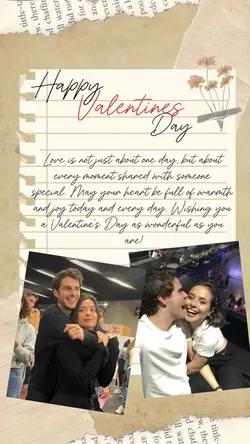 Happy
Valentines
Day
Love is not just about one day, but about
every moment shared with someone
special. May your heart be full of warmth
and joy today and every day. Wishing you
a Valentine's Day as wonderful as you
are!